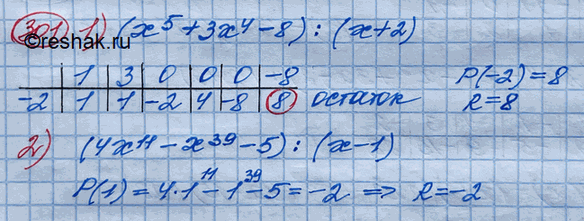 301 1) (x⁵ + 3x⁴ - 8) : (x+2)
©reshak.ru
| 1 | 3 | 0 | 0 | 0 | -8
-2 | 1 | 1 | -2 | 4 | -8 | 8 остаток
P(-2) = 8
R = 8
2) (4x¹¹ - x³⁹ - 5) : (x-1)
P(1) = 4·1¹¹ - 1³⁹ - 5 = -2 ⇒ R = -2